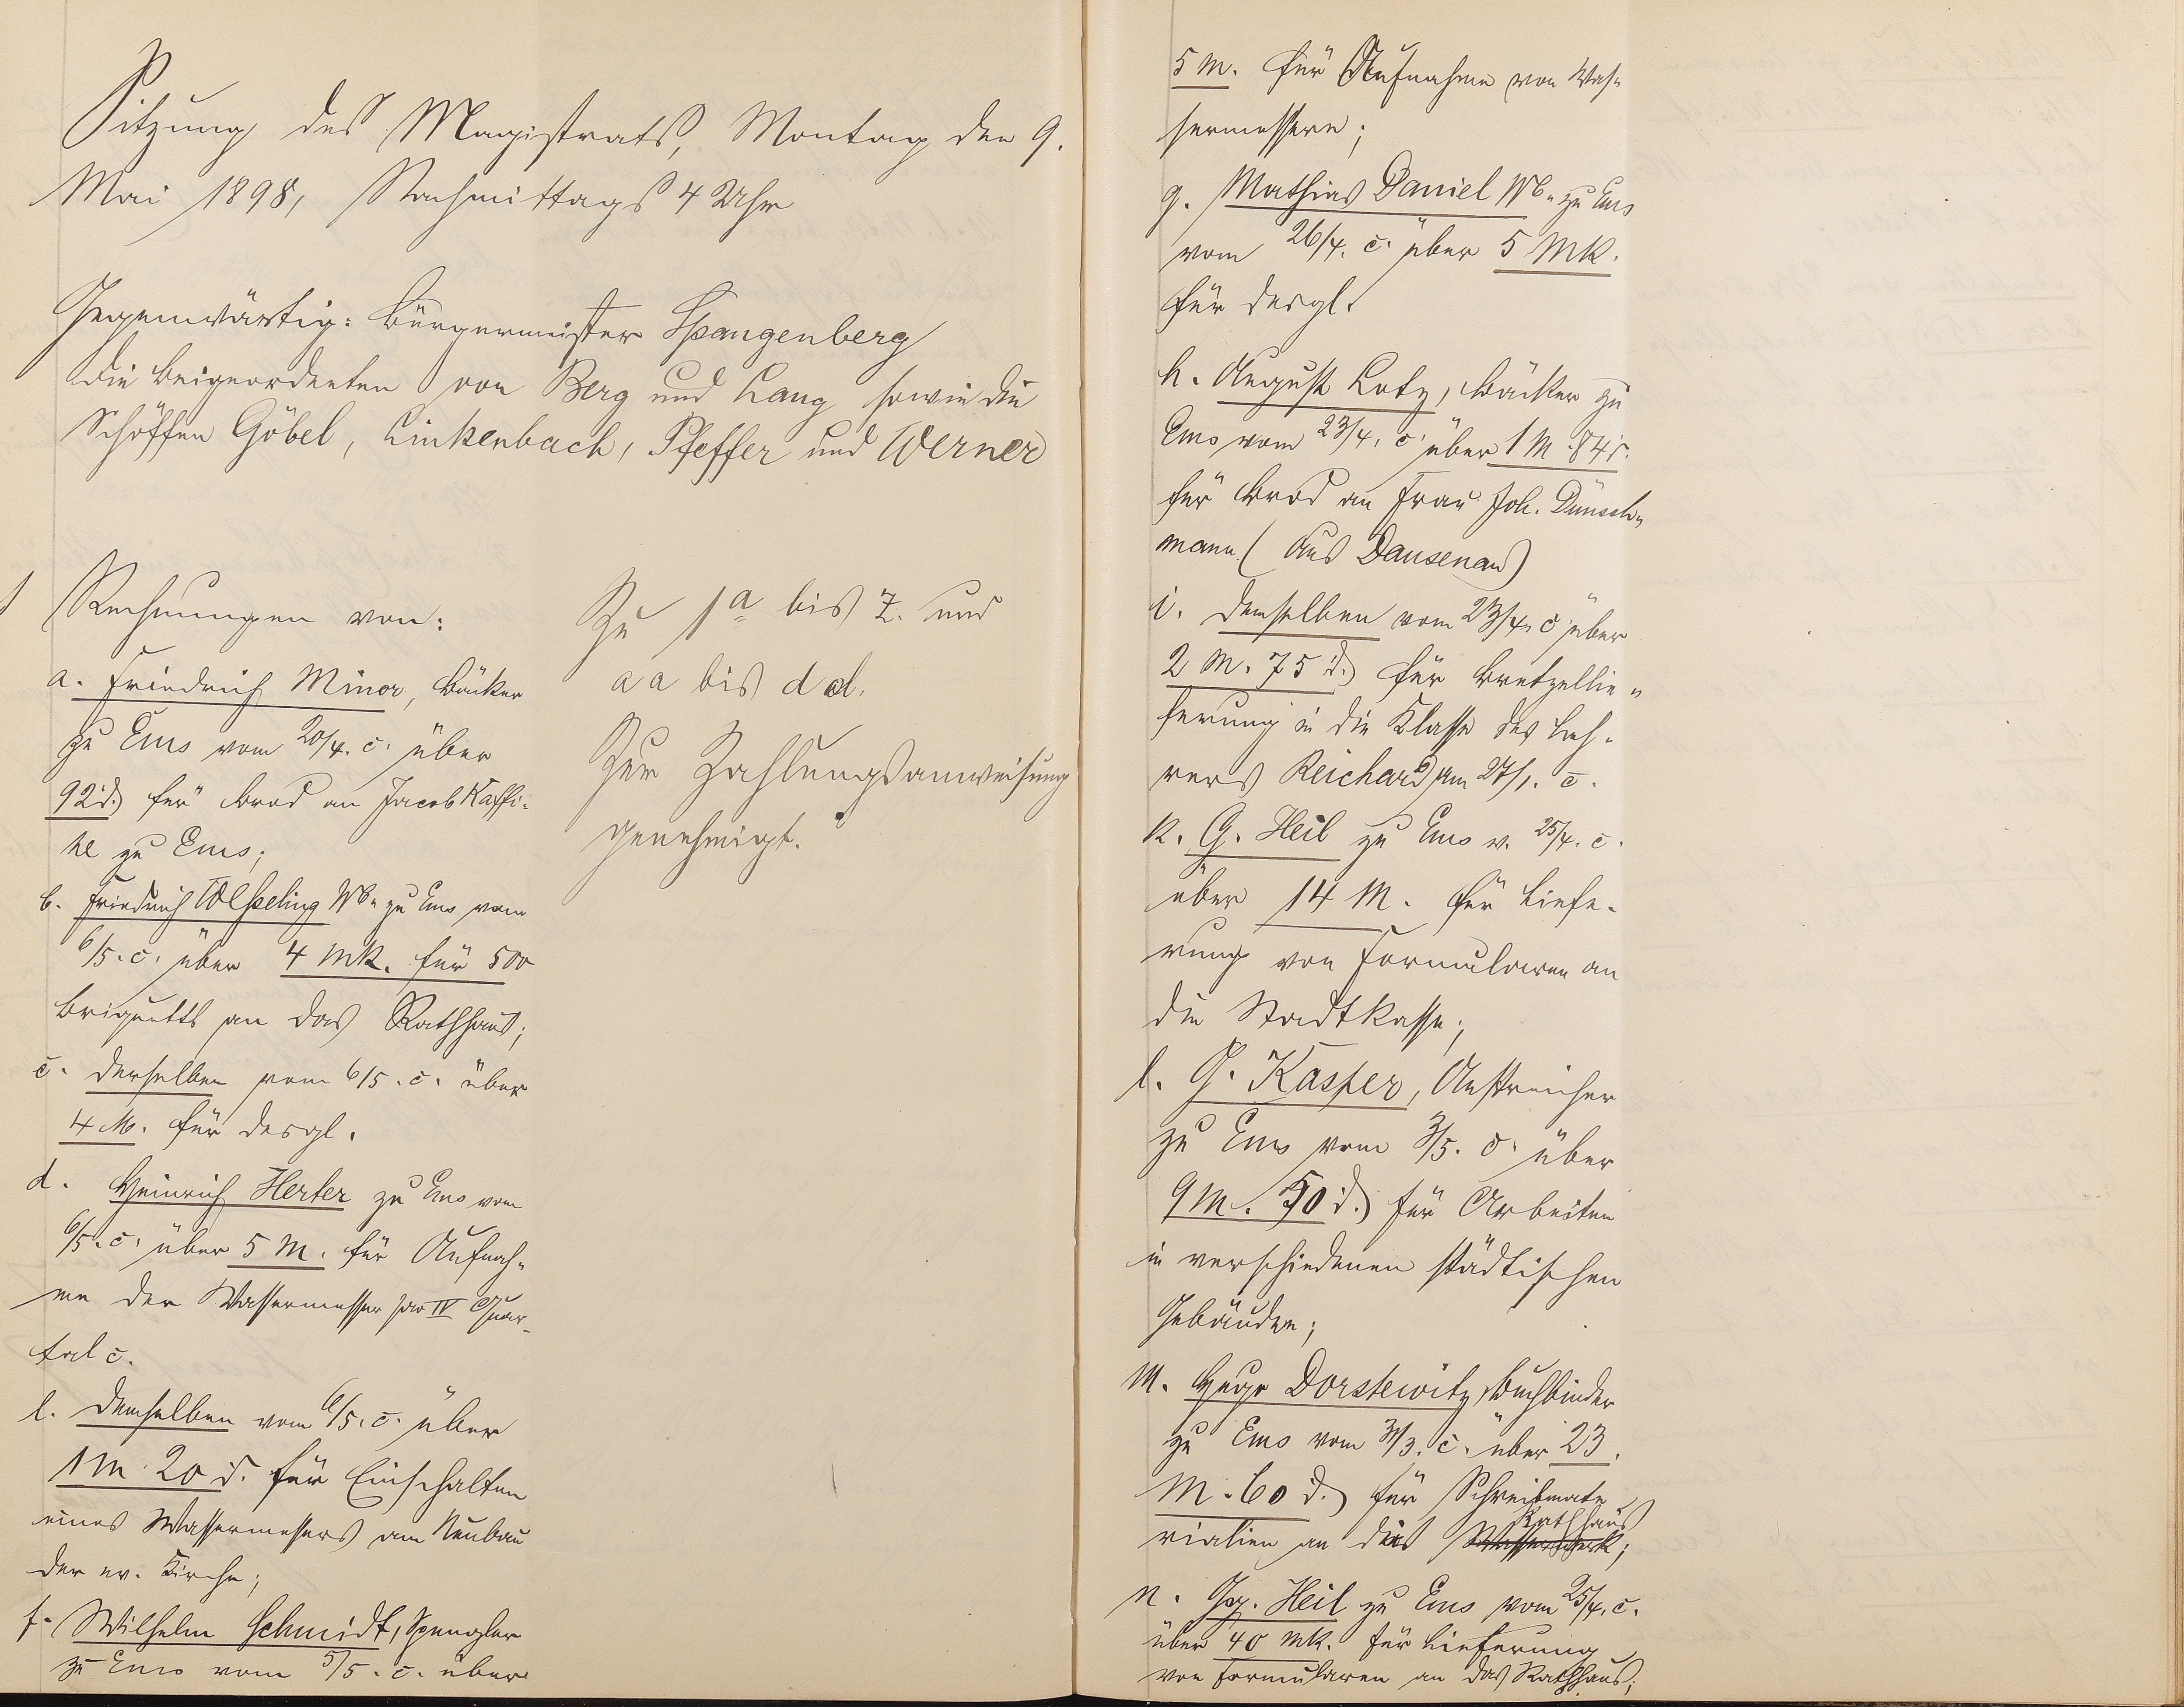 Sitzung des Magistrats, Montag den 9.
Mai 1898, Nachmittags 4 Uhr
Gegenwärtig: Bürgermeister Spangenberg
die Beigeordneten von Berg und Lang sowie die
Schöffen Göbel, Linkenbach, Pfeffer und Werner
1 Rechnungen von:
a. Friedrich Minor, Bäcker
zu Ems vom 20/4. c. über
92 d. für Brod an Jacob Kaffi-
ne zu Ems;
b. Friedrich Wc. zu Ems vom
6/5. c. über 4 Mk. für 500
Briquetts an das Rathhaus;
c. derselben vom 6/5. c. über
4 M. für desgl.
d. Heinrich Herter zu Ems vom
6/5. c. über 5 M. für Aufnah-
me der Wassermesser pro IV Quar-
tal c.
e. demselben vom 6/5. c. über
1 M 20 d. für Einschalten
eines Wassermessers am Neubau
der ev. Kirche;
f. Wilhelm Schmidt, Spengler
zu Ems vom 5/5. c. über
Zu 1a bis z. und
aa bis dd.
Zur Zahlungsanweisung
genehmigt.
5 M. für Aufnahme von Was-
sermessern;
g. Mathias Daniel Wc. zu Ems
vom 26/4. c. über 5 Mk.
für desgl.
h. August Lotz, Bäcker zu
Ems vom 23/4. c. über 1 M 84 d.
für Brod an Frau Joh. Dünsch-
mann (aus Dausenau)
i. demselben vom 23/4. c. über
2 M. 75 d. für Bretzellie-
ferung in die Klasse des Leh-
rers Reichard am 27/1. c.
k. G. Heil zu Ems v. 25/4. c.
über 14 M. für Liefe-
rung von Formularen an
die Stadtkasse;
l. G. Kasper, Anstreicher
zu Ems vom 3/5. c. über
9 M. 50 d. für Arbeiten
in verschiedenen städtischen
Gebäuden;
m. Hugo Dorstewitz, Buchbinder
zu Ems vom 31/3. c. über 23.
M. 60 d. für Schreibmate-
rialien an das Wasserwerk Rathhaus;
n. Gg. Heil zu Ems vom 25/4. c.
über 40 Mk. für Lieferung
von Formularen an das Rathhaus;